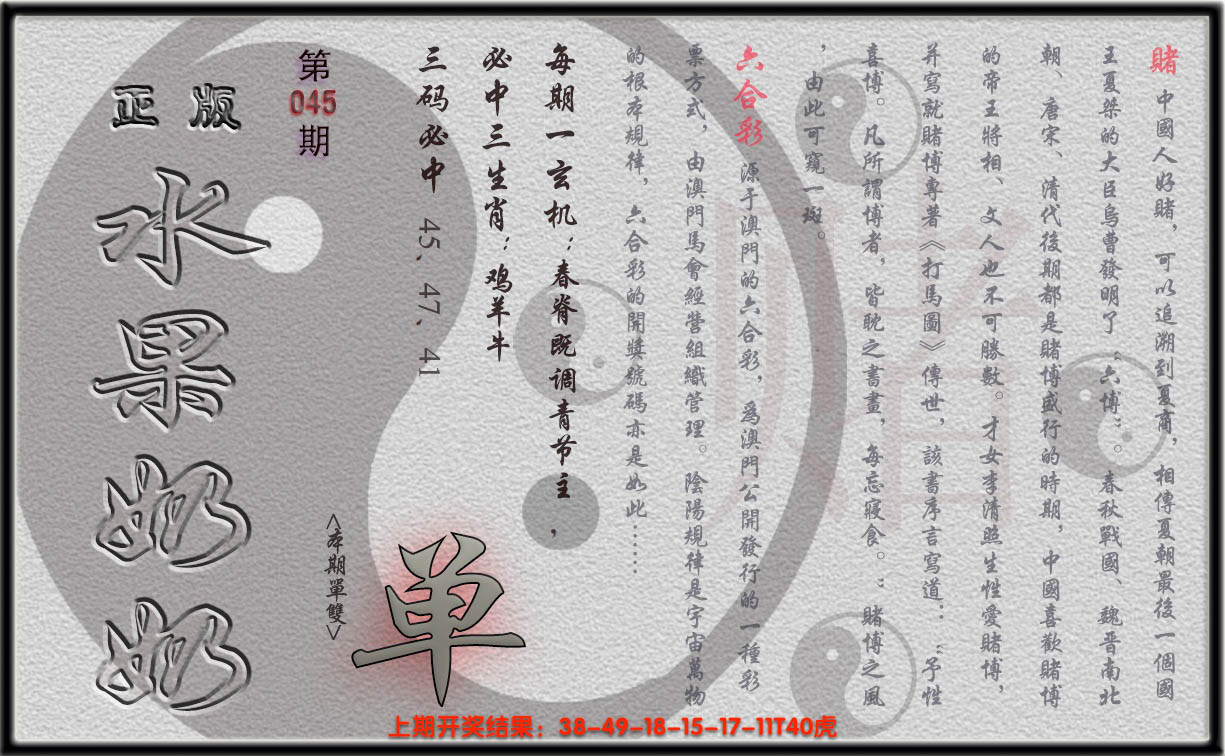 賭 中國人好賭，可以追溯到夏商，相傳夏朝最後一個國
王夏桀的大臣烏曹發明了“六博”。春秋戰國、魏晋南北
朝、唐宋、清代後期都是賭博盛行的時期，中國喜歡賭博
的帝王將相、文人也不可勝數。才女李清照生性愛賭博，
并寫就賭博專著《打馬圖》傳世，該書序言寫道：“予性
喜博。凡所謂博者，皆耽之書畫，每忘寢食。”賭博之風
，由此可窺一斑。
六合彩 源于澳門的六合彩，爲澳門公開發行的一種彩
票方式，由澳門馬會經營組織管理。陰陽規律是宇宙萬物
的根本規律，六合彩的開獎號碼亦是如此……
每期一玄机：春脊既调青节主，
必中三生肖：鸡羊牛
三码必中 45、47、41
第045期
正版
水果奶奶
<本期單雙>
单
上期开奖结果：38-49-18-15-17-11T40虎